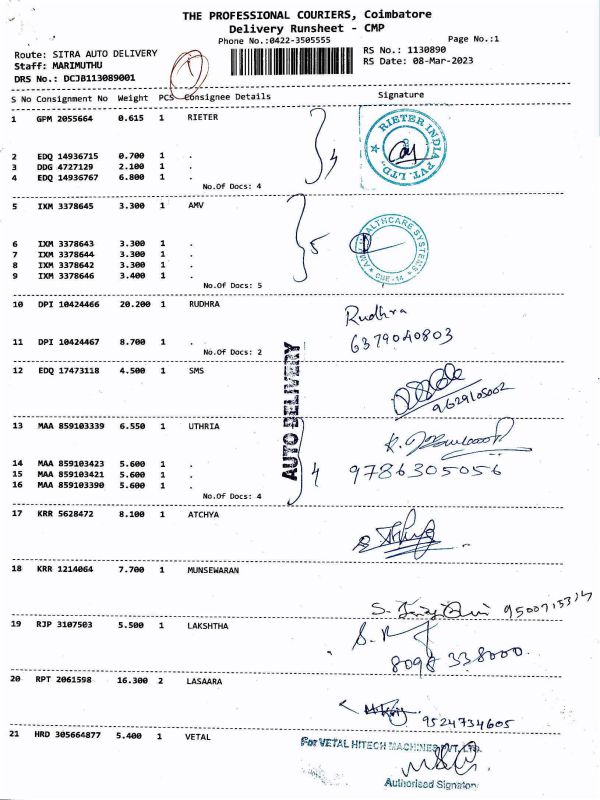 THE PROFESSIONAL COURIERS, Coimbatore
Delivery Runsheet - CMP
Phone No.:0422-3505555
Page No.:1
Route: SITRA AUTO DELIVERY
RS No.: 1130890
Staff: MARIMUTHU
RS Date: 08-Mar-2023
DRS No.: DCJB113089001
1
S No Consignment No Weight PCS Consignee Details Signature
1 GPM 2055664 0.615 1 RIETER
RIETER INDIA PVT. LTD.
2 EDQ 14936715 0.700 1 .
4
3 DDG 4727129 2.100 1 .
4 EDQ 14936767 6.800 1 .
No.Of Docs: 4
5 IXM 3378645 3.300 1 AMV
HEALTHCARE SYSTEMS
CBE-14
6 IXM 3378643 3.300 1 .
5
7 IXM 3378644 3.300 1 .
8 IXM 3378642 3.300 1 .
9 IXM 3378646 3.400 1 .
No.Of Docs: 5
10 DPI 10424466 20.200 1 RUDHRA
Rudhra
6379040803
11 DPI 10424467 8.700 1 .
No.Of Docs: 2
AUTO DELIVERY
12 EDQ 17473118 4.500 1 SMS
9629105002
13 MAA 859103339 6.550 1 UTHRIA
14 MAA 859103423 5.600 1 .
4
9786305056
15 MAA 859103421 5.600 1 .
16 MAA 859103390 5.600 1 .
No.Of Docs: 4
17 KRR 5628472 8.100 1 ATCHYA
18 KRR 1214064 7.700 1 MUNSEWARAN
19 RJP 3107503 5.500 1 LAKSHTHA
8098 338000
20 RPT 2061598 16.300 2 LASAARA
9524734605
21 HRD 305664877 5.400 1 VETAL
For VETAL HITECH MACHINES PVT. LTD.
Authorised Signatory